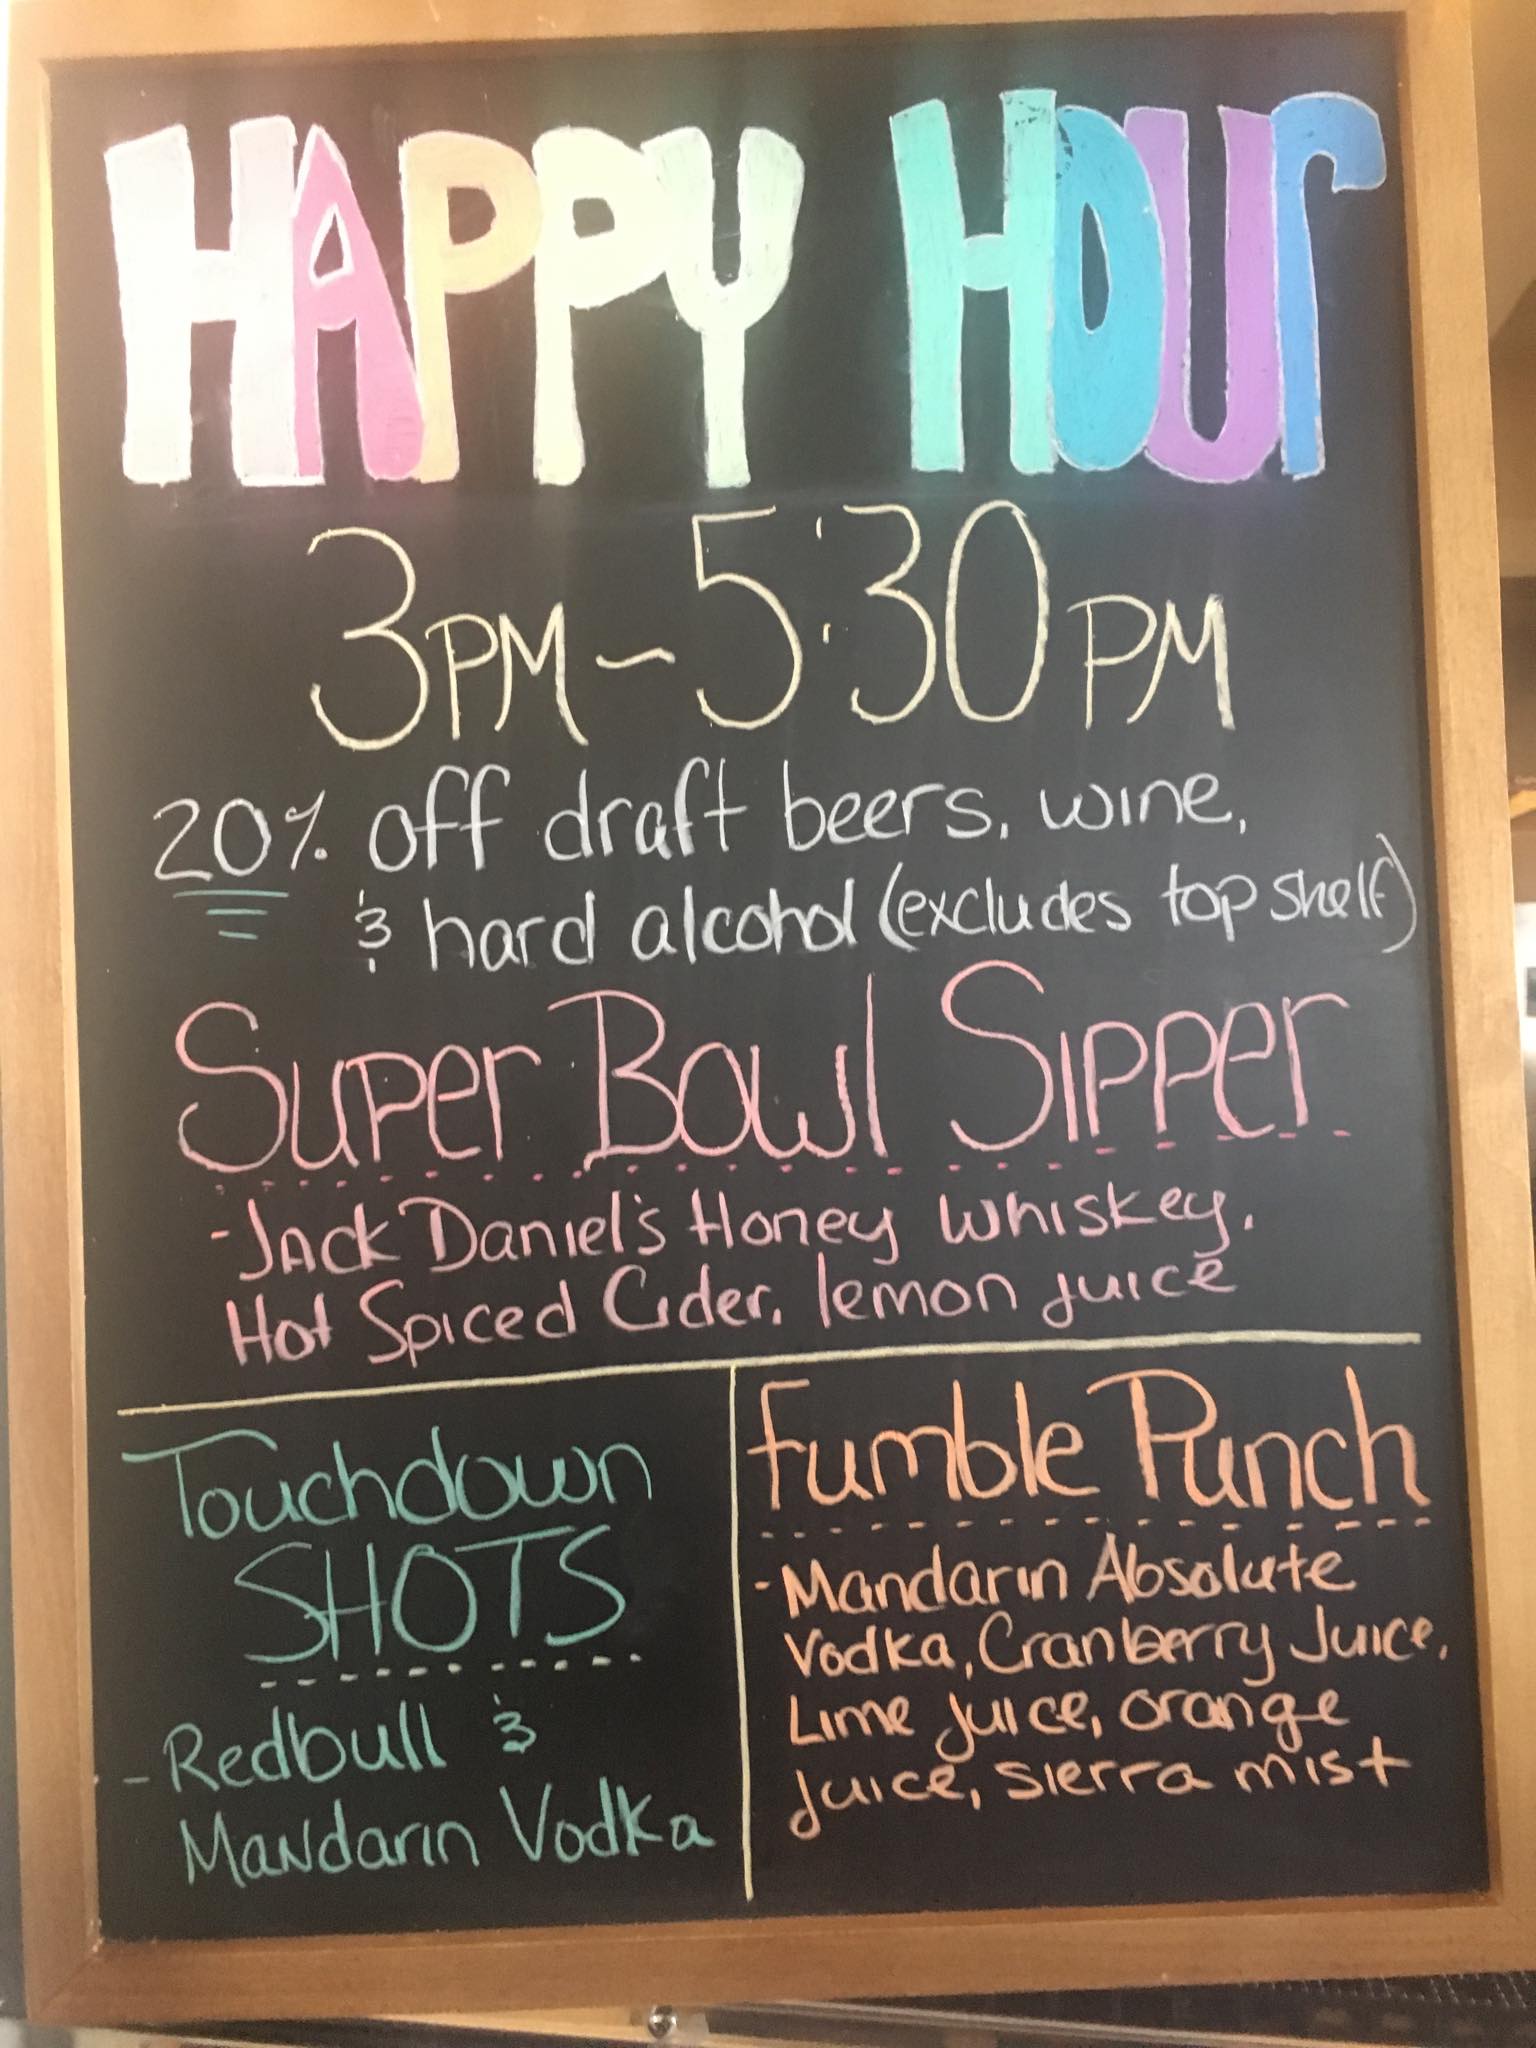 HAPPY HOUr
3PM ~ 5:30 PM
20% off draft beers, wine,
& hard alcohol (excludes top shelf)
Super Bowl Sipper
- Jack Daniel's Honey Whiskey,
Hot Spiced Cider, lemon juice
Touchdown
SHOTS
- Redbull &
Mandarin Vodka
Fumble Punch
- Mandarin Absolute
Vodka, Cranberry Juice,
Lime juice, orange
juice, sierra mist